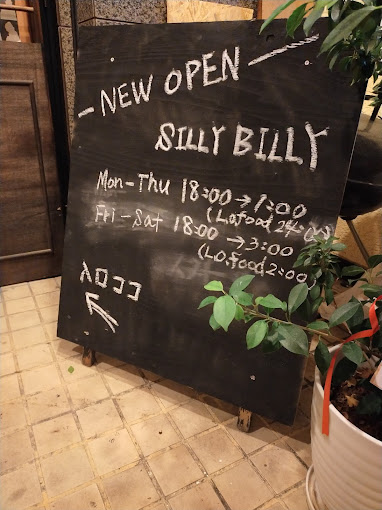 NEW OPEN
SILLY BILLY
Mon-Thu 18:00→1:00
(L.O.food 24:00)
Fri-Sat 18:00→3:00
(L.O.food 2:00)
入口ココ